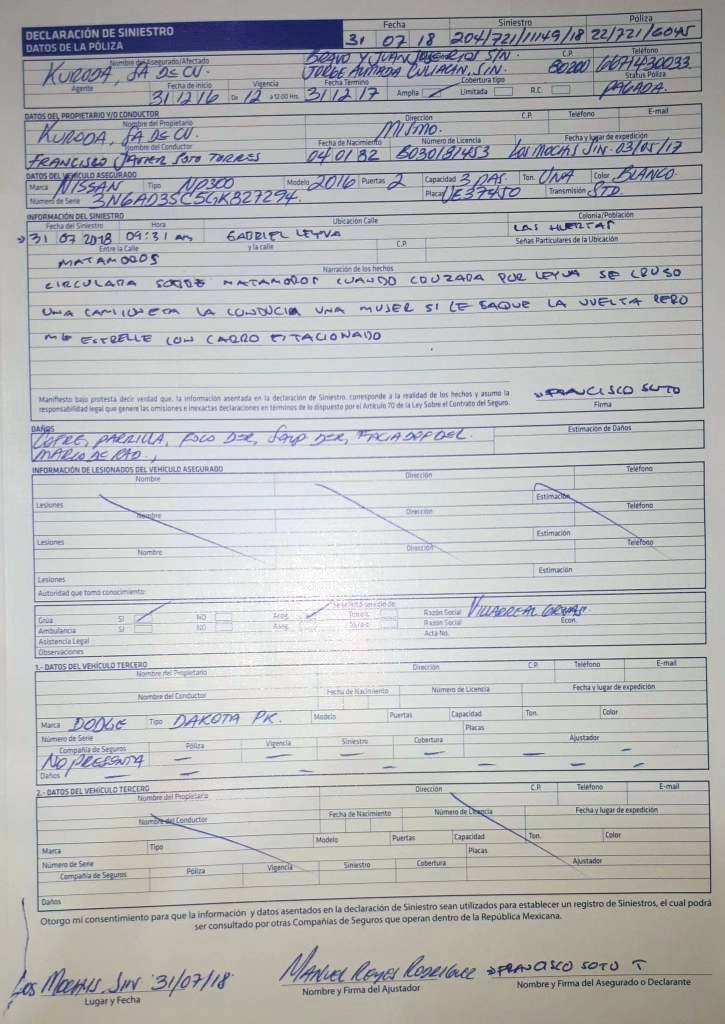 DECLARACIÓN DE SINIESTRO
DATOS DE LA PÓLIZA
Fecha Siniestro Póliza
31 07 18 204/721/11149/18 22/721/6045
Nombre del Asegurado/Afectado C.P. Teléfono
KURODA, SA DE CV. BRAVO Y JUAN JOSE RIOS S/N. JORGE ALMADA CULIACAN, SIN. 80200 6671430033
Agente Fecha de Inicio Vigencia Fecha Término Cobertura tipo Status Póliza
31 12 16 De 12 a 12:00 Hrs. 31 12 17 Amplia Limitada R.C. PAGADA.
DATOS DEL PROPIETARIO Y/O CONDUCTOR
Nombre del Propietario Dirección C.P. Teléfono E-mail
KURODA, SA DE CV. MISMO.
Nombre del Conductor Fecha de Nacimiento Número de Licencia Fecha y lugar de expedición
FRANCISCO JAVIER SOTO TORRES 04 01 82 B030181453 LOS MOCHIS SIN. 03/05/17
DATOS DEL VEHÍCULO ASEGURADO
Marca NISSAN Tipo NP300 Modelo 2016 Puertas 2 Capacidad 3 PAS. Ton. UNA Color BLANCO
Número de Serie 3N6AD35C5GK827294. Placas UE37450 Transmisión STD.
INFORMACIÓN DEL SINIESTRO
Fecha del Siniestro Hora Ubicación Calle Colonia/Población
31 07 2018 09:31 am GABRIEL LEYVA LAS HUERTAS
Entre la Calle y la calle C.P. Señas Particulares de la Ubicación
MATAMOROS
Narración de los hechos
CIRCULABA SOBRE MATAMOROS CUANDO CRUZABA POR LEYVA SE CRUSO
UNA CAMIONETA LA CONDUCIA UNA MUJER SI LE SAQUE LA VUELTA PERO
ME ESTRELLE CON CARRO ESTACIONADO
Manifiesto bajo protesta decir verdad que, la información asentada en la declaración de Siniestro, corresponde a la realidad de los hechos y asumo la
responsabilidad legal que genere las omisiones e inexactas declaraciones en términos de lo dispuesto por el Artículo 70 de la Ley Sobre el Contrato del Seguro.
FRANCISCO SOTO
Firma
DAÑOS Estimación de Daños
COFRE, PARRILLA, FOCO DER, DER, DEL.
MARCO DE RAD.,
INFORMACIÓN DE LESIONADOS DEL VEHÍCULO ASEGURADO
Nombre Dirección Teléfono
Lesiones Estimación
Nombre Dirección Teléfono
Lesiones Estimación
Nombre Dirección Teléfono
Lesiones Estimación
Autoridad que tomó conocimiento:
Se solicitó servicio de:
Grúa SI NO Aseg. Tercero Razón Social VILLARREAL GRUAS.
Ambulancia SI NO Aseg. Tercero Razón Social Econ.
Asistencia Legal Acta No.
Observaciones
1.- DATOS DEL VEHÍCULO TERCERO
Nombre del Propietario Dirección C.P. Teléfono E-mail
Nombre del Conductor Fecha de Nacimiento Número de Licencia Fecha y lugar de expedición
Marca DODGE Tipo DAKOTA PK. Modelo Puertas Capacidad Ton. Color
Número de Serie Placas
Compañía de Seguros Póliza Vigencia Siniestro Cobertura Ajustador
NO PRESENTA — — — — —
Daños — — — — — —
2.- DATOS DEL VEHÍCULO TERCERO
Nombre del Propietario Dirección C.P. Teléfono E-mail
Nombre del Conductor Fecha de Nacimiento Número de Licencia Fecha y lugar de expedición
Marca Tipo Modelo Puertas Capacidad Ton. Color
Número de Serie Placas
Compañía de Seguros Póliza Vigencia Siniestro Cobertura Ajustador
Daños
Otorgo mi consentimiento para que la información y datos asentados en la declaración de Siniestro sean utilizados para establecer un registro de Siniestros, el cual podrá
ser consultado por otras Compañías de Seguros que operan dentro de la República Mexicana.
LOS MOCHIS, SIN 31/07/18 MANUEL REYES RODRIGUEZ FRANCISCO SOTO T
Lugar y Fecha Nombre y Firma del Ajustador Nombre y Firma del Asegurado o Declarante